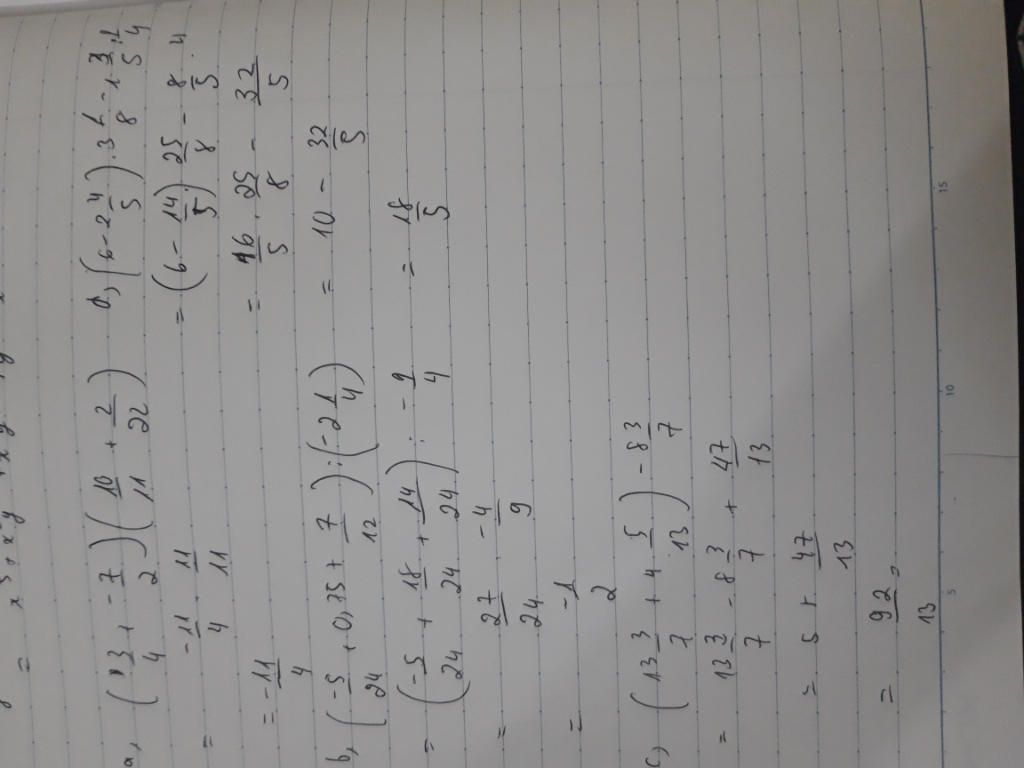 = x³ + x²y
a, (3/4 + -7/2)(10/11 + 2/22)
= -11/4 . 11/11
= -11/4
b, (-5/24 + 0,75 + 7/12) : (-2 1/4)
= (-5/24 + 18/24 + 14/24) : -9/4
= 27/24 . -4/9
= -1/2
c, (13 3/7 + 4 5/13) - 8 3/7
= 13 3/7 - 8 3/7 + 47/13
= 5 + 47/13
= 92/13
d, (6 - 2 4/5) . 3 1/8 - 1 3/5 : 1/4
= (6 - 14/5) . 25/8 - 8/5 . 4
= 16/5 . 25/8 - 32/5
= 10 - 32/5
= 18/5